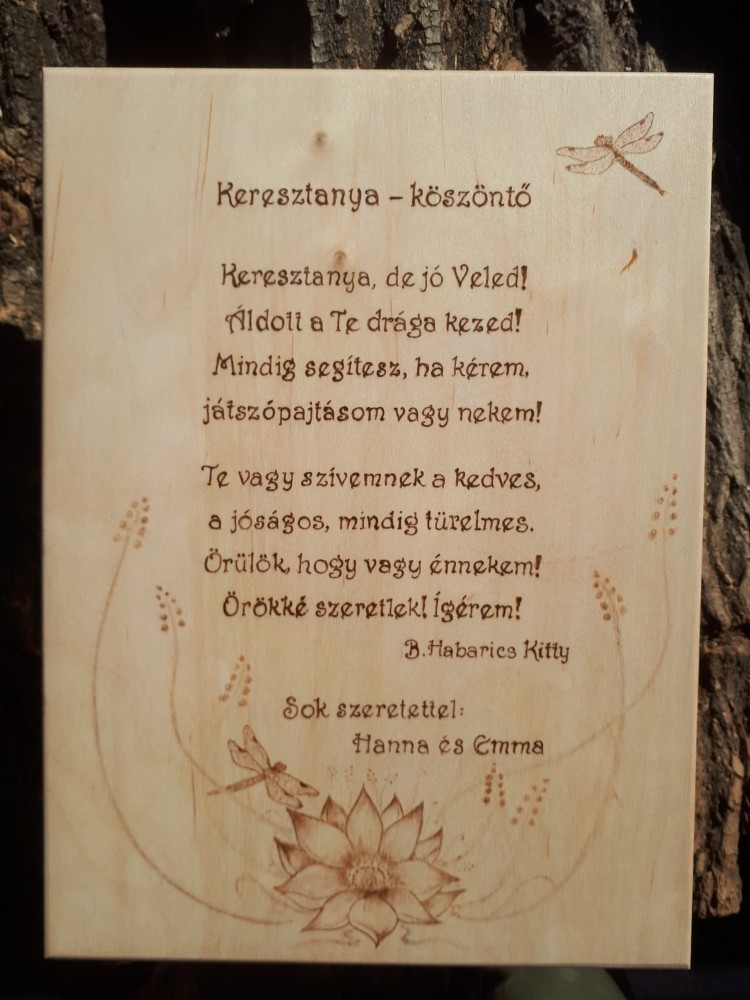 Keresztanya – köszöntő
Keresztanya, de jó Veled!
Áldott a Te drága kezed!
Mindig segítesz, ha kérem,
játszópajtásom vagy nekem!
Te vagy szívemnek a kedves,
a jóságos, mindig türelmes.
Örülök, hogy vagy énnekem!
Örökké szeretlek! Ígérem!
B.Habarics Kitty
Sok szeretettel:
Hanna és Emma